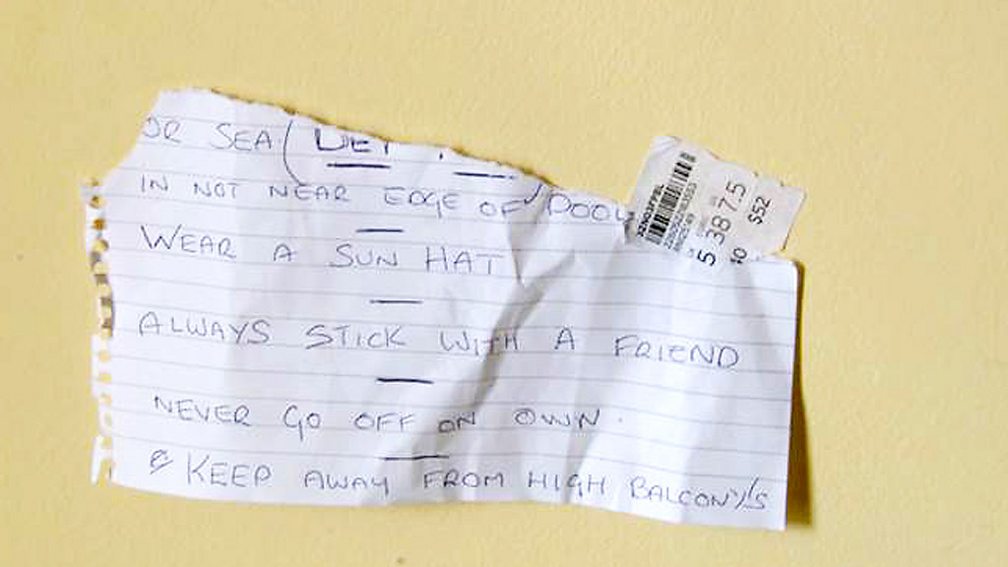 OR SEA (
IN NOT NEAR EDGE OF POOL
WEAR A SUN HAT
ALWAYS STICK WITH A FRIEND
NEVER GO OFF ON OWN.
& KEEP AWAY FROM HIGH BALCONY'S
387.5
$52